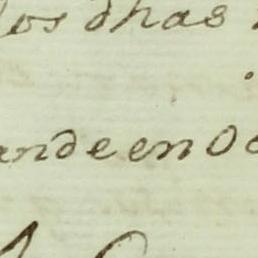 los dhas
ande en Oc